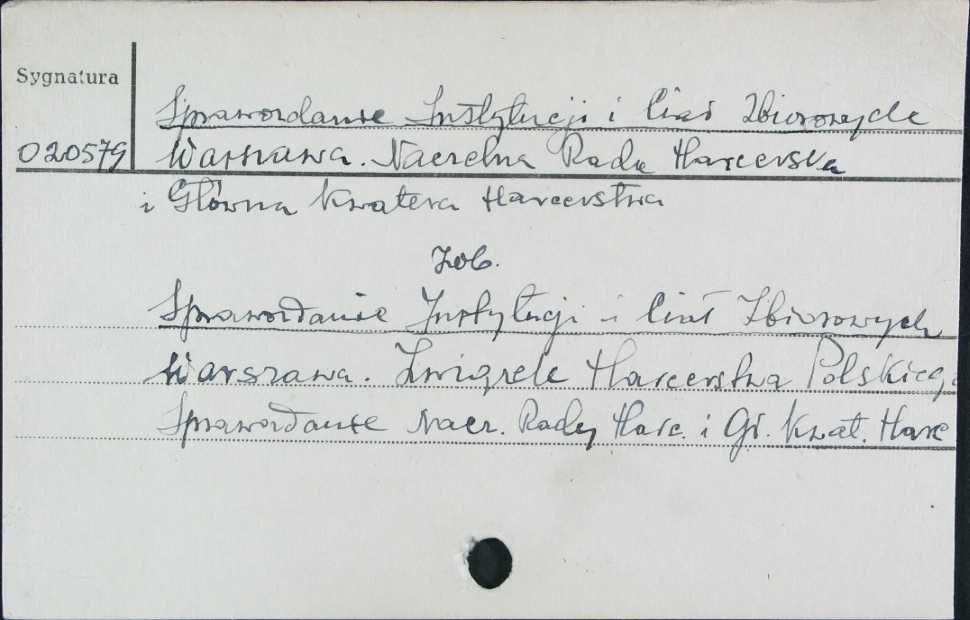 Sygnatura
Sprawozdanie Instytucji i Ciał Zbiorowych
020579 Warszawa. Naczelna Rada Harcerska
i Główna Kwatera Harcerstwa
Zob.
Sprawozdanie Instytucji i Ciał Zbiorowych
Warszawa. Związek Harcerstwa Polskiego
Sprawozdanie Nacz. Rady Harc. i Gł. Kwat. Harc